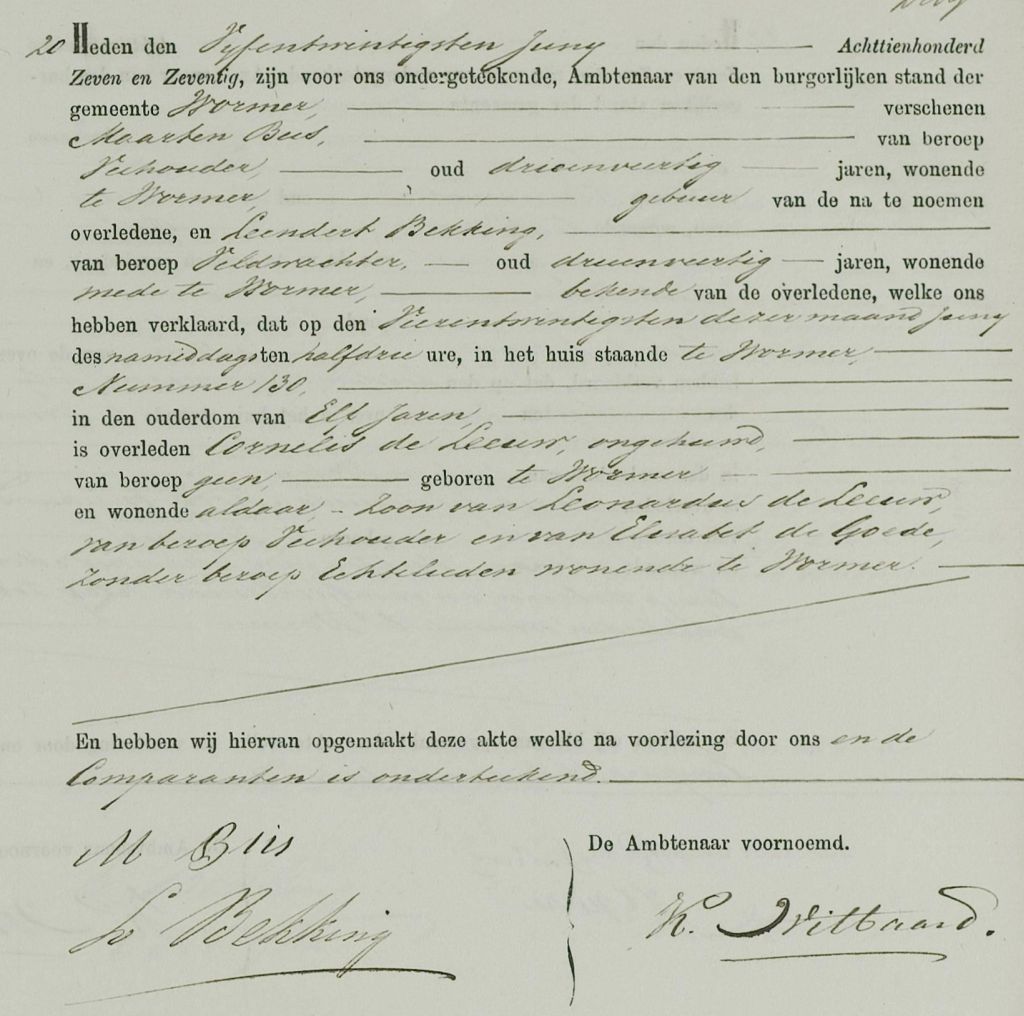 20 Heden den Vyfentwintigsten Juny Achttienhonderd
Zeven en Zeventig, zijn voor ons ondergeteekende, Ambtenaar van den burgerlijken stand der
gemeente Wormer, verschenen
Maarten Bus, van beroep
Veehouder, oud drieenveertig jaren, wonende
te Wormer, gebuur van de na te noemen
overledene, en Leendert Bekking,
van beroep Veldwachter, oud drieenveertig jaren, wonende
mede te Wormer, bekende van de overledene, welke ons
hebben verklaard, dat op den Vierentwintigsten dezer maand Juny
des namiddags ten halfdrie ure, in het huis staande te Wormer,
Nummer 130,
in den ouderdom van Elf Jaren,
is overleden Cornelis de Leeuw, ongehuwd,
van beroep geen geboren te Wormer
en wonende aldaar, - Zoon van Leonardus de Leeuw,
van beroep Veehouder en van Elisabet de Goede,
zonder beroep Echtelieden wonende te Wormer.
En hebben wij hiervan opgemaakt deze akte welke na voorlezing door ons en de
Comparanten is onderteekend.
De Ambtenaar voornoemd.
M
L Bekking
K. Witbaard.